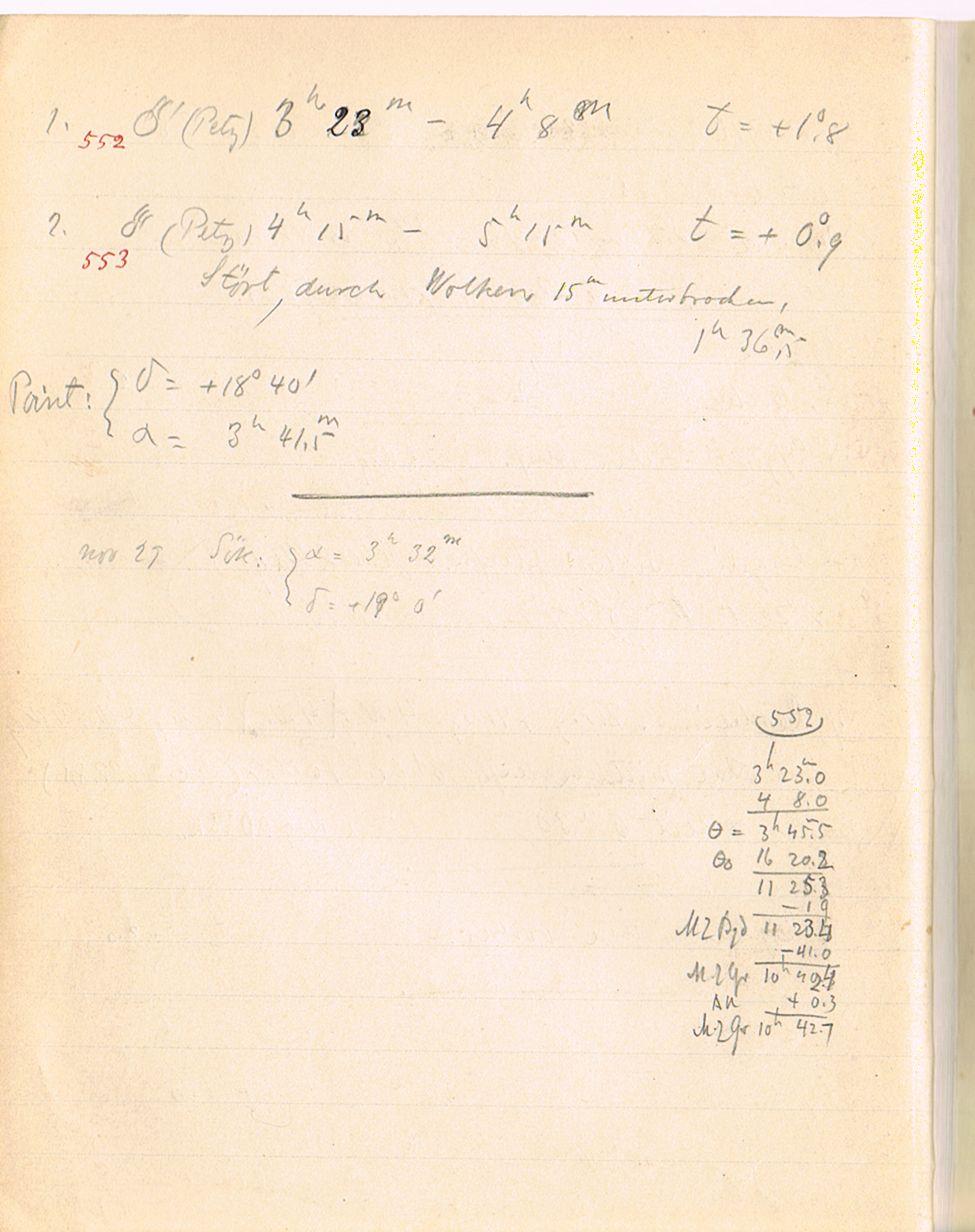 1. 552 (Petz) 3ʰ 23ᵐ – 4ʰ 8ᵐ t = +1°.8
2. 553 (Petz) 4ʰ 15ᵐ – 5ʰ 15ᵐ t = + 0°.9
Stört, durch Wolken 15ᵐ unterbrochen,
1ʰ 36ᵐ,5
Point: { δ = +18° 40'
α = 3ʰ 41,5ᵐ
nov 29 { α = 3ʰ 32ᵐ
δ = +19° 0'
552
3ʰ 23ᵐ.0
4 8.0
θ = 3ʰ 45.5
θ₀ 16 20.2
11 25.3
– 1.9
MZ 11 23.4
– 41.0
MZ Gr 10ʰ 42.4
+ 0.3
MZ Gr 10ʰ 42.7